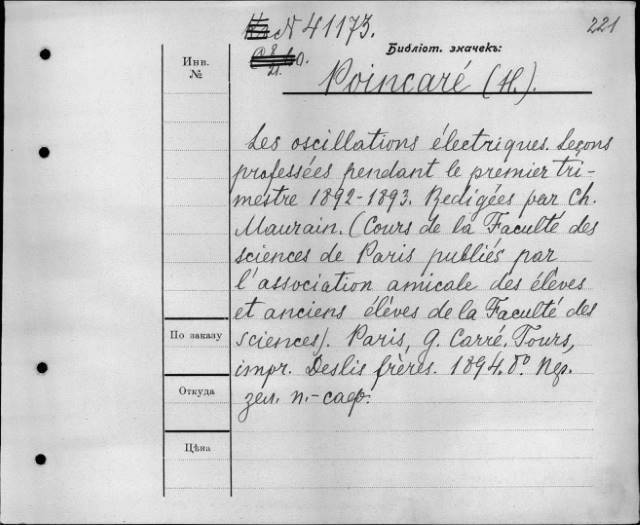 N 41173.
221
Библіот. значекъ:
Инв.
№
Poincaré (H.).
Les oscillations électriques. Leçons
professées pendant le premier tri-
mestre 1892-1893. Redigées par Ch.
Maurain. (Cours de la Faculté des
sciences de Paris publiés par
l'association amicale des élèves
et anciens élèves de la Faculté des
sciences). Paris, G. Carré. Tours,
impr. Deslis frères. 1894. 8°. Пер.
зел. п.-саф.
По заказу
Откуда
Цѣна